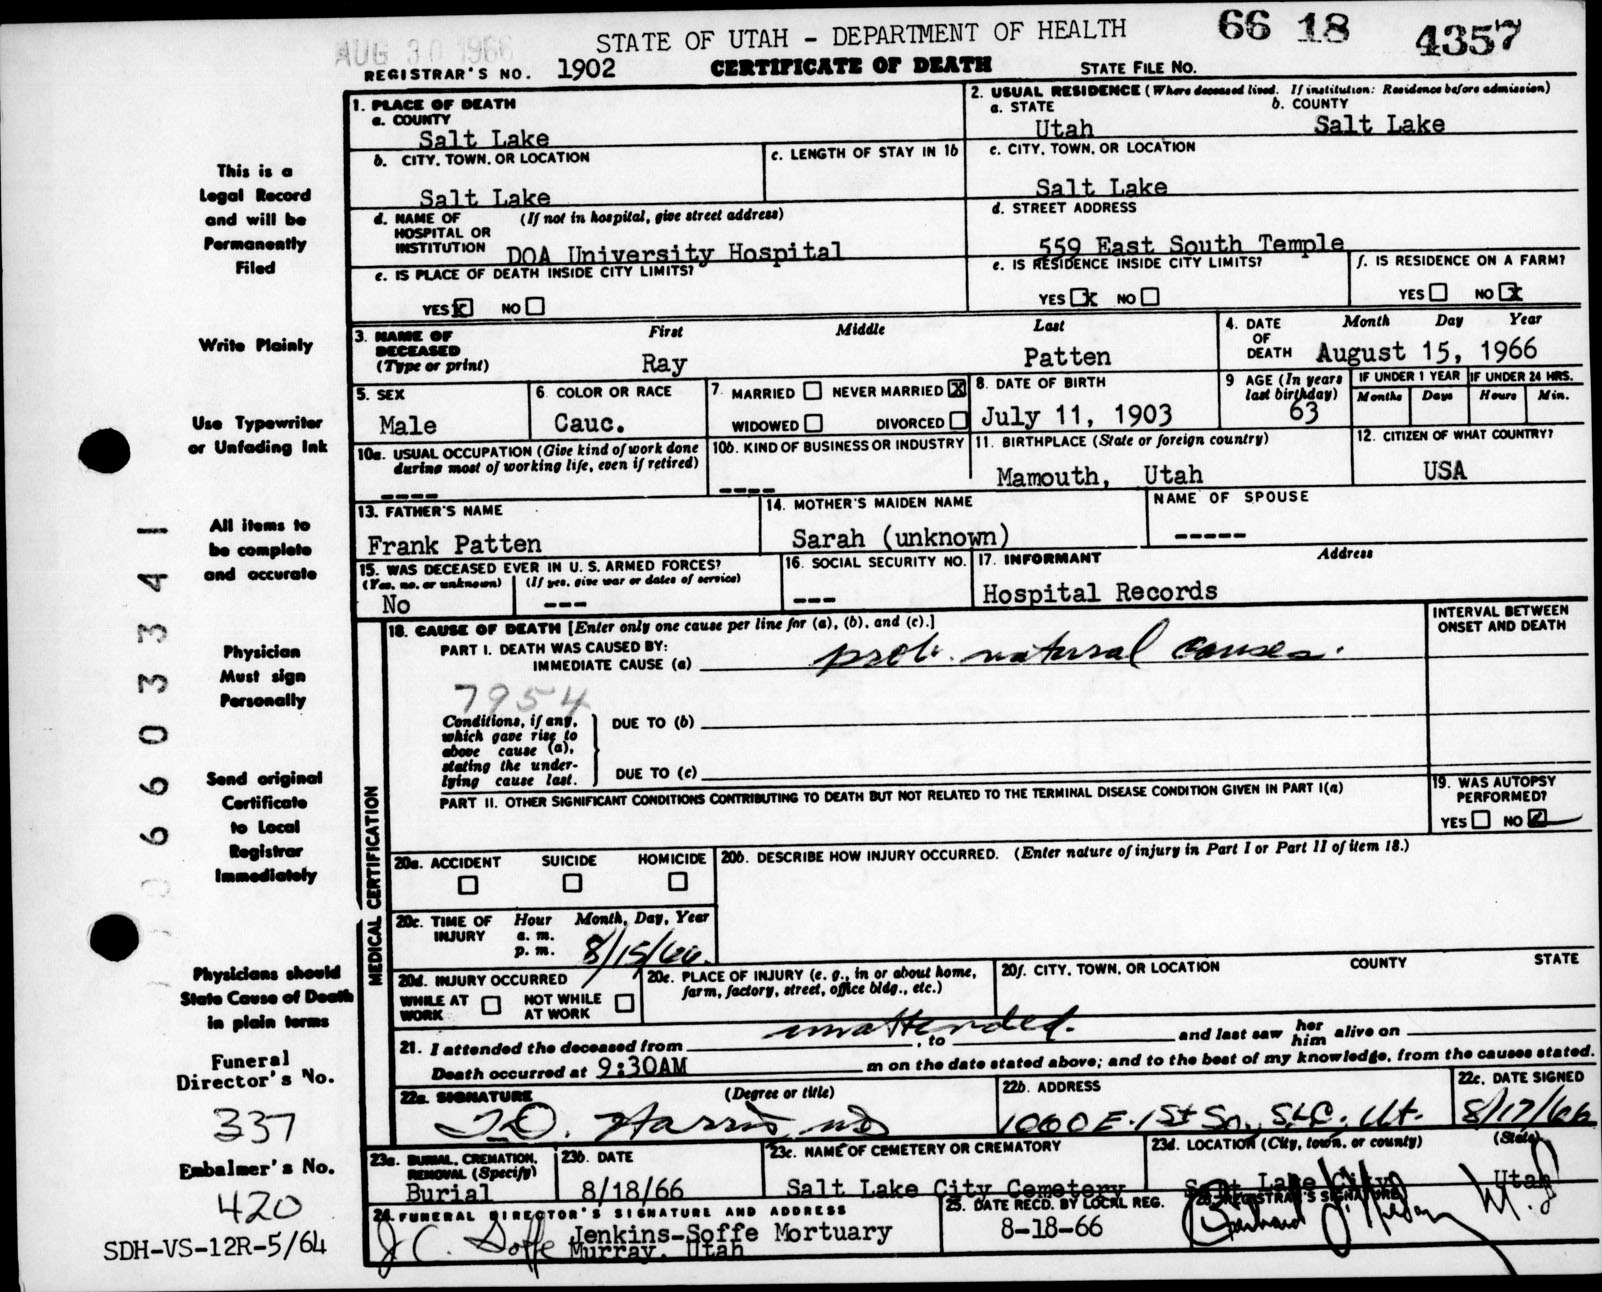 AUG 30 1966
STATE OF UTAH - DEPARTMENT OF HEALTH 66 18 4357
REGISTRAR'S NO. 1902 CERTIFICATE OF DEATH STATE FILE NO.
1. PLACE OF DEATH
a. COUNTY
Salt Lake
2. USUAL RESIDENCE (Where deceased lived. If institution: Residence before admission)
a. STATE b. COUNTY
Utah Salt Lake
b. CITY, TOWN, OR LOCATION
Salt Lake
c. LENGTH OF STAY IN 1b
c. CITY, TOWN, OR LOCATION
Salt Lake
d. NAME OF HOSPITAL OR INSTITUTION (If not in hospital, give street address)
DOA University Hospital
d. STREET ADDRESS
559 East South Temple
e. IS PLACE OF DEATH INSIDE CITY LIMITS?
YES x NO
e. IS RESIDENCE INSIDE CITY LIMITS?
YES x NO
f. IS RESIDENCE ON A FARM?
YES NO x
3. NAME OF DECEASED (Type or print)
First Middle Last
Ray Patten
4. DATE OF DEATH Month Day Year
August 15, 1966
5. SEX
Male
6. COLOR OR RACE
Cauc.
7. MARRIED NEVER MARRIED X
WIDOWED DIVORCED
8. DATE OF BIRTH
July 11, 1903
9 AGE (In years last birthday)
63
IF UNDER 1 YEAR IF UNDER 24 HRS.
Months Days Hours Min.
10a. USUAL OCCUPATION (Give kind of work done during most of working life, even if retired)
----
10b. KIND OF BUSINESS OR INDUSTRY
----
11. BIRTHPLACE (State or foreign country)
Mamouth, Utah
12. CITIZEN OF WHAT COUNTRY?
USA
13. FATHER'S NAME
Frank Patten
14. MOTHER'S MAIDEN NAME
Sarah (unknown)
NAME OF SPOUSE
-----
15. WAS DECEASED EVER IN U. S. ARMED FORCES?
(Yes, no, or unknown) (If yes, give war or dates of service)
No ---
16. SOCIAL SECURITY NO.
---
17. INFORMANT Address
Hospital Records
MEDICAL CERTIFICATION
18. CAUSE OF DEATH [Enter only one cause per line for (a), (b), and (c).]
PART I. DEATH WAS CAUSED BY:
IMMEDIATE CAUSE (a) prob. natural causes.
INTERVAL BETWEEN ONSET AND DEATH
7954
Conditions, if any, which gave rise to above cause (a), stating the underlying cause last.
DUE TO (b)
DUE TO (c)
PART II. OTHER SIGNIFICANT CONDITIONS CONTRIBUTING TO DEATH BUT NOT RELATED TO THE TERMINAL DISEASE CONDITION GIVEN IN PART I(a)
19. WAS AUTOPSY PERFORMED?
YES NO
20a. ACCIDENT SUICIDE HOMICIDE
20b. DESCRIBE HOW INJURY OCCURRED. (Enter nature of injury in Part I or Part II of item 18.)
20c. TIME OF INJURY Hour Month, Day, Year
a. m.
p. m. 8/15/66.
20d. INJURY OCCURRED
WHILE AT WORK NOT WHILE AT WORK
20e. PLACE OF INJURY (e. g., in or about home, farm, factory, street, office bldg., etc.)
20f. CITY, TOWN, OR LOCATION COUNTY STATE
21. I attended the deceased from unattended. , to and last saw her him alive on
Death occurred at 9:30AM m on the date stated above; and to the best of my knowledge, from the causes stated.
22a. SIGNATURE (Degree or title)
Harris MD
22b. ADDRESS
1000 E. 1st So., S.L.C. Ut.
22c. DATE SIGNED
8/17/66
23a. BURIAL, CREMATION, REMOVAL (Specify)
Burial
23b. DATE
8/18/66
23c. NAME OF CEMETERY OR CREMATORY
Salt Lake City Cemetery
23d. LOCATION (City, town, or county) (State)
Salt Lake City Utah
24. FUNERAL DIRECTOR'S SIGNATURE AND ADDRESS
J C. Soffe Jenkins-Soffe Mortuary
Murray, Utah
25. DATE RECD. BY LOCAL REG.
8-18-66
26. REGISTRAR'S SIGNATURE
This is a
Legal Record
and will be
Permanently
Filed
Write Plainly
Use Typewriter
or Unfading Ink
All items to
be complete
and accurate
Physician
Must sign
Personally
Send original
Certificate
to Local
Registrar
Immediately
Physicians should
State Cause of Death
in plain terms
Funeral
Director's No.
337
Embalmer's No.
420
SDH-VS-12R-5/64